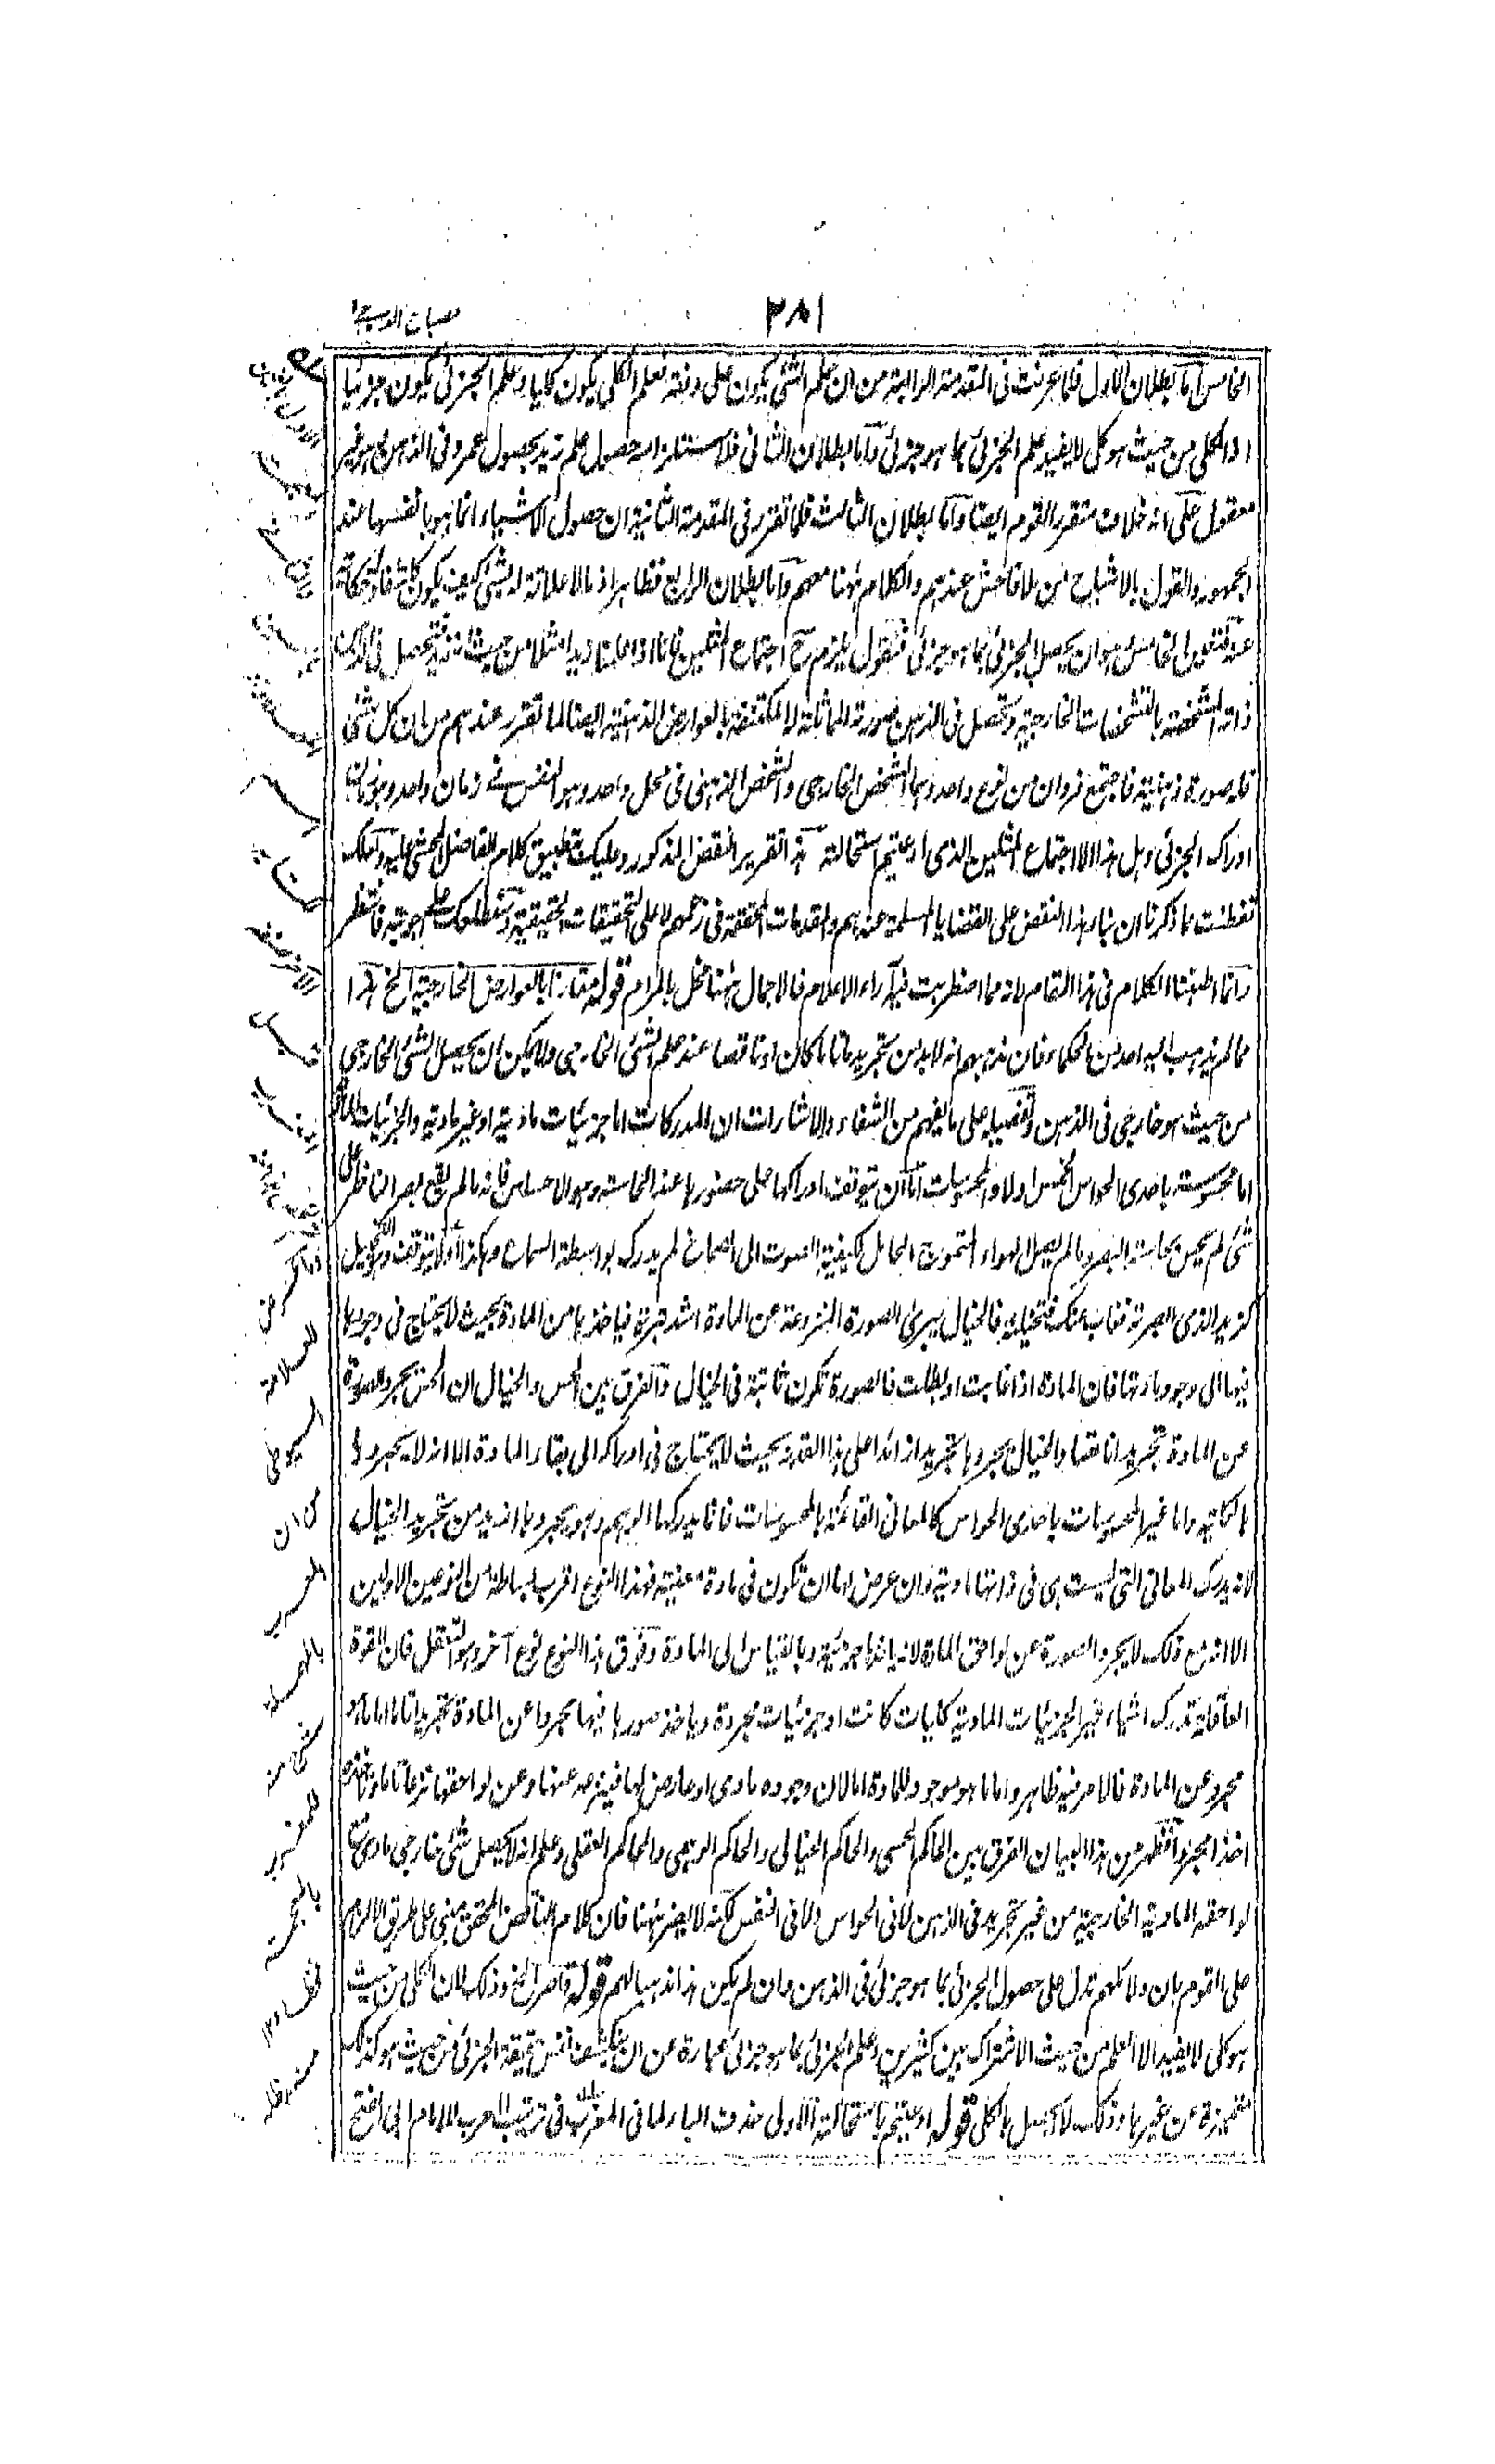 ٢٨١
مصباح الدجى
الخامس اما بطلان الاول فلما عرفت فى المقدمة الرابعة من ان علم الشئ يكون على وفقه فعلم الكلى يكون كليا وعلم الجزئى يكون جزئيا
اذ الكلى من حيث هو كلى لا يفيد علم الجزئى بما هو جزئى واما بطلان الثانى فلاستلزامه حصول علم زيد بحصول عمرو فى الذهن وهو غير
معقول على انه خلاف متقرر القوم ايضا واما بطلان الثالث فلما تقرر فى المقدمة الثانية ان حصول الاشياء انما هو بانفسها عند
الجمهور والقول بالاشباح من فاحش عندهم والكلام ههنا معهم واما بطلان الرابع فظاهر اذ مالا علاقة له بشئ كيف يكون كاشفا وحكاية
عنه فتعين الخامس وهو ان يحصل الجزئى بما هو جزئى فنقول يلزم ح اجتماع المثلين فانا اذا علمنا زيدا مثلا من حيث انه زيد تحصل فى الذهن
ذاته المشخصة بالتشخصات الخارجية وتحصل فى الذهن صورته المماثلة له المكتنفة بالعوارض الذهنية ايضا لما تقرر عندهم من ان كل شئ
فله صورة ذهنية فاجتمع فردان من نوع واحد وهما الشخص الخارجى والشخص الذهنى فى محل واحد وهو النفس فى زمان واحد وهو زمان
ادراك الجزئى وهل هذا الا اجتماع المثلين الذى ادعيتم استحالته هذا تقرير النقض المذكور وعليك بتطبيق كلام الفاضل المحشى عليه ولعلك
تفطنت مما ذكرنا ان بناء هذا النقض على القضايا المسلمة عندهم والمقدمات المحققة فى زعمهم لا على التحقيقات الحقيقية وستطلعك على اجوبته فانتظر
وانما اطنبنا الكلام فى هذا المقام لانه مما اضطربت فيه آراء الاعلام فالاجمال ههنا مخل بالمرام قوله مقارنا بالعوارض الخارجية الخ هذا
مما لم يذهب اليه احد من الحكماء فان مذهبهم انه لابد من تجريد تاما كان او ناقصا عند علم الشئ الخارجى ولا يمكن ان يحصل الشئ الخارجى
من حيث هو خارجى فى الذهن وتفصيله على ما يفهم من الشفاء والاشارات ان المدركات اما جزئيات مادية او غير مادية والجزئيات المادية
اما محسوسة باحدى الحواس الخمس اولا والمحسوسات اما ان يتوقف ادراكها على حضورها عند الحاسة وهو الاحساس فانه مالم يقع بصر الناظر على
شئ لم يحس بحاسة البصر ومالم يصل الهواء المتموج الحامل لكيفية الصوت الى الصماخ لم يدرك بواسطة السماع وهكذا اولا يتوقف وهو التخييل
كزيد الذى ابصرته فغاب عنك فتخيلته فالخيال يبرئ الصورة المنزوعة عن المادة اشد تبرئة فياخذها من المادة بحيث لا يحتاج فى وجودها
فيها الى وجود مادتها فان المادة اذا غابت او بطلت فالصورة تكون ثابتة فى الخيال والفرق بين الحس والخيال ان الحس يجرد الصورة
عن المادة تجريدا ناقصا والخيال يجردها تجريدا زائدا على هذا القدر بحيث لا يحتاج فى ادراكه الى بقاء المادة الا انه لا يجردها
بالكلية واما غير المحسوسات باحدى الحواس كالمعانى القائمة بالمحسوسات فانما يدركها الوهم وهو يجردها ازيد من تجريد الخيال
لانه يدرك المعانى التى ليست هى فى ذاتها مادية وان عرض لها ان تكون فى مادة معينة فهذا النوع اقرب بساطة من النوعين الاولين
الا انه مع ذلك لا يجرد الصورة عن لواحق المادة لانه ياخذها جزئية وبالقياس الى المادة وفوق هذا النوع نوع آخر وهو التعقل فان القوة
العاقلة تدرك اشياء غير الجزئيات المادية كليات كانت او جزئيات مجردة وياخذ صورها فيها مجردا عن المادة تجريدا تاما اما ما هو
مجرد عن المادة فالامر فيه ظاهر واما ما هو موجود للمادة اما لان وجوده مادى او عارض لها فينزعه عنها وعن لواحقها نزعا تاما وياخذه
اخذا مجردا فظهر من هذا البيان الفرق بين الحاكم الحسى والحاكم الخيالى والحاكم الوهمى والحاكم العقلى وعلم انه لا يحصل شئ خارجى مادى مع
لواحقه المادية الخارجية من غير تجريد فى الذهن لا فى الحواس ولا فى النفس لكنه لا يضر ههنا فان كلام الناقض المحقق مبنى على طريق الالزام
على القوم بان دلائلهم تدل على حصول الجزئى بما هو جزئى فى الذهن وان لم يكن هذا مذهبا لهم قوله قاصر الخ وذلك لان الكلى من حيث
هو كلى لا يفيد الا العلم من حيث الاشتراك بين كثيرين وعلم الجزئى بما هو جزئى عبارة عن ان ينكشف نفس حقيقة الجزئى من حيث هو كذلك
متميزة عن غيرها وذلك لا يحصل بالكلى قوله ادعيتم باستحالته الاولى حذف الباء لما فى المغرب فى ترتيب المعرب للامام ابى الفتح
للعلامة
السيوطى